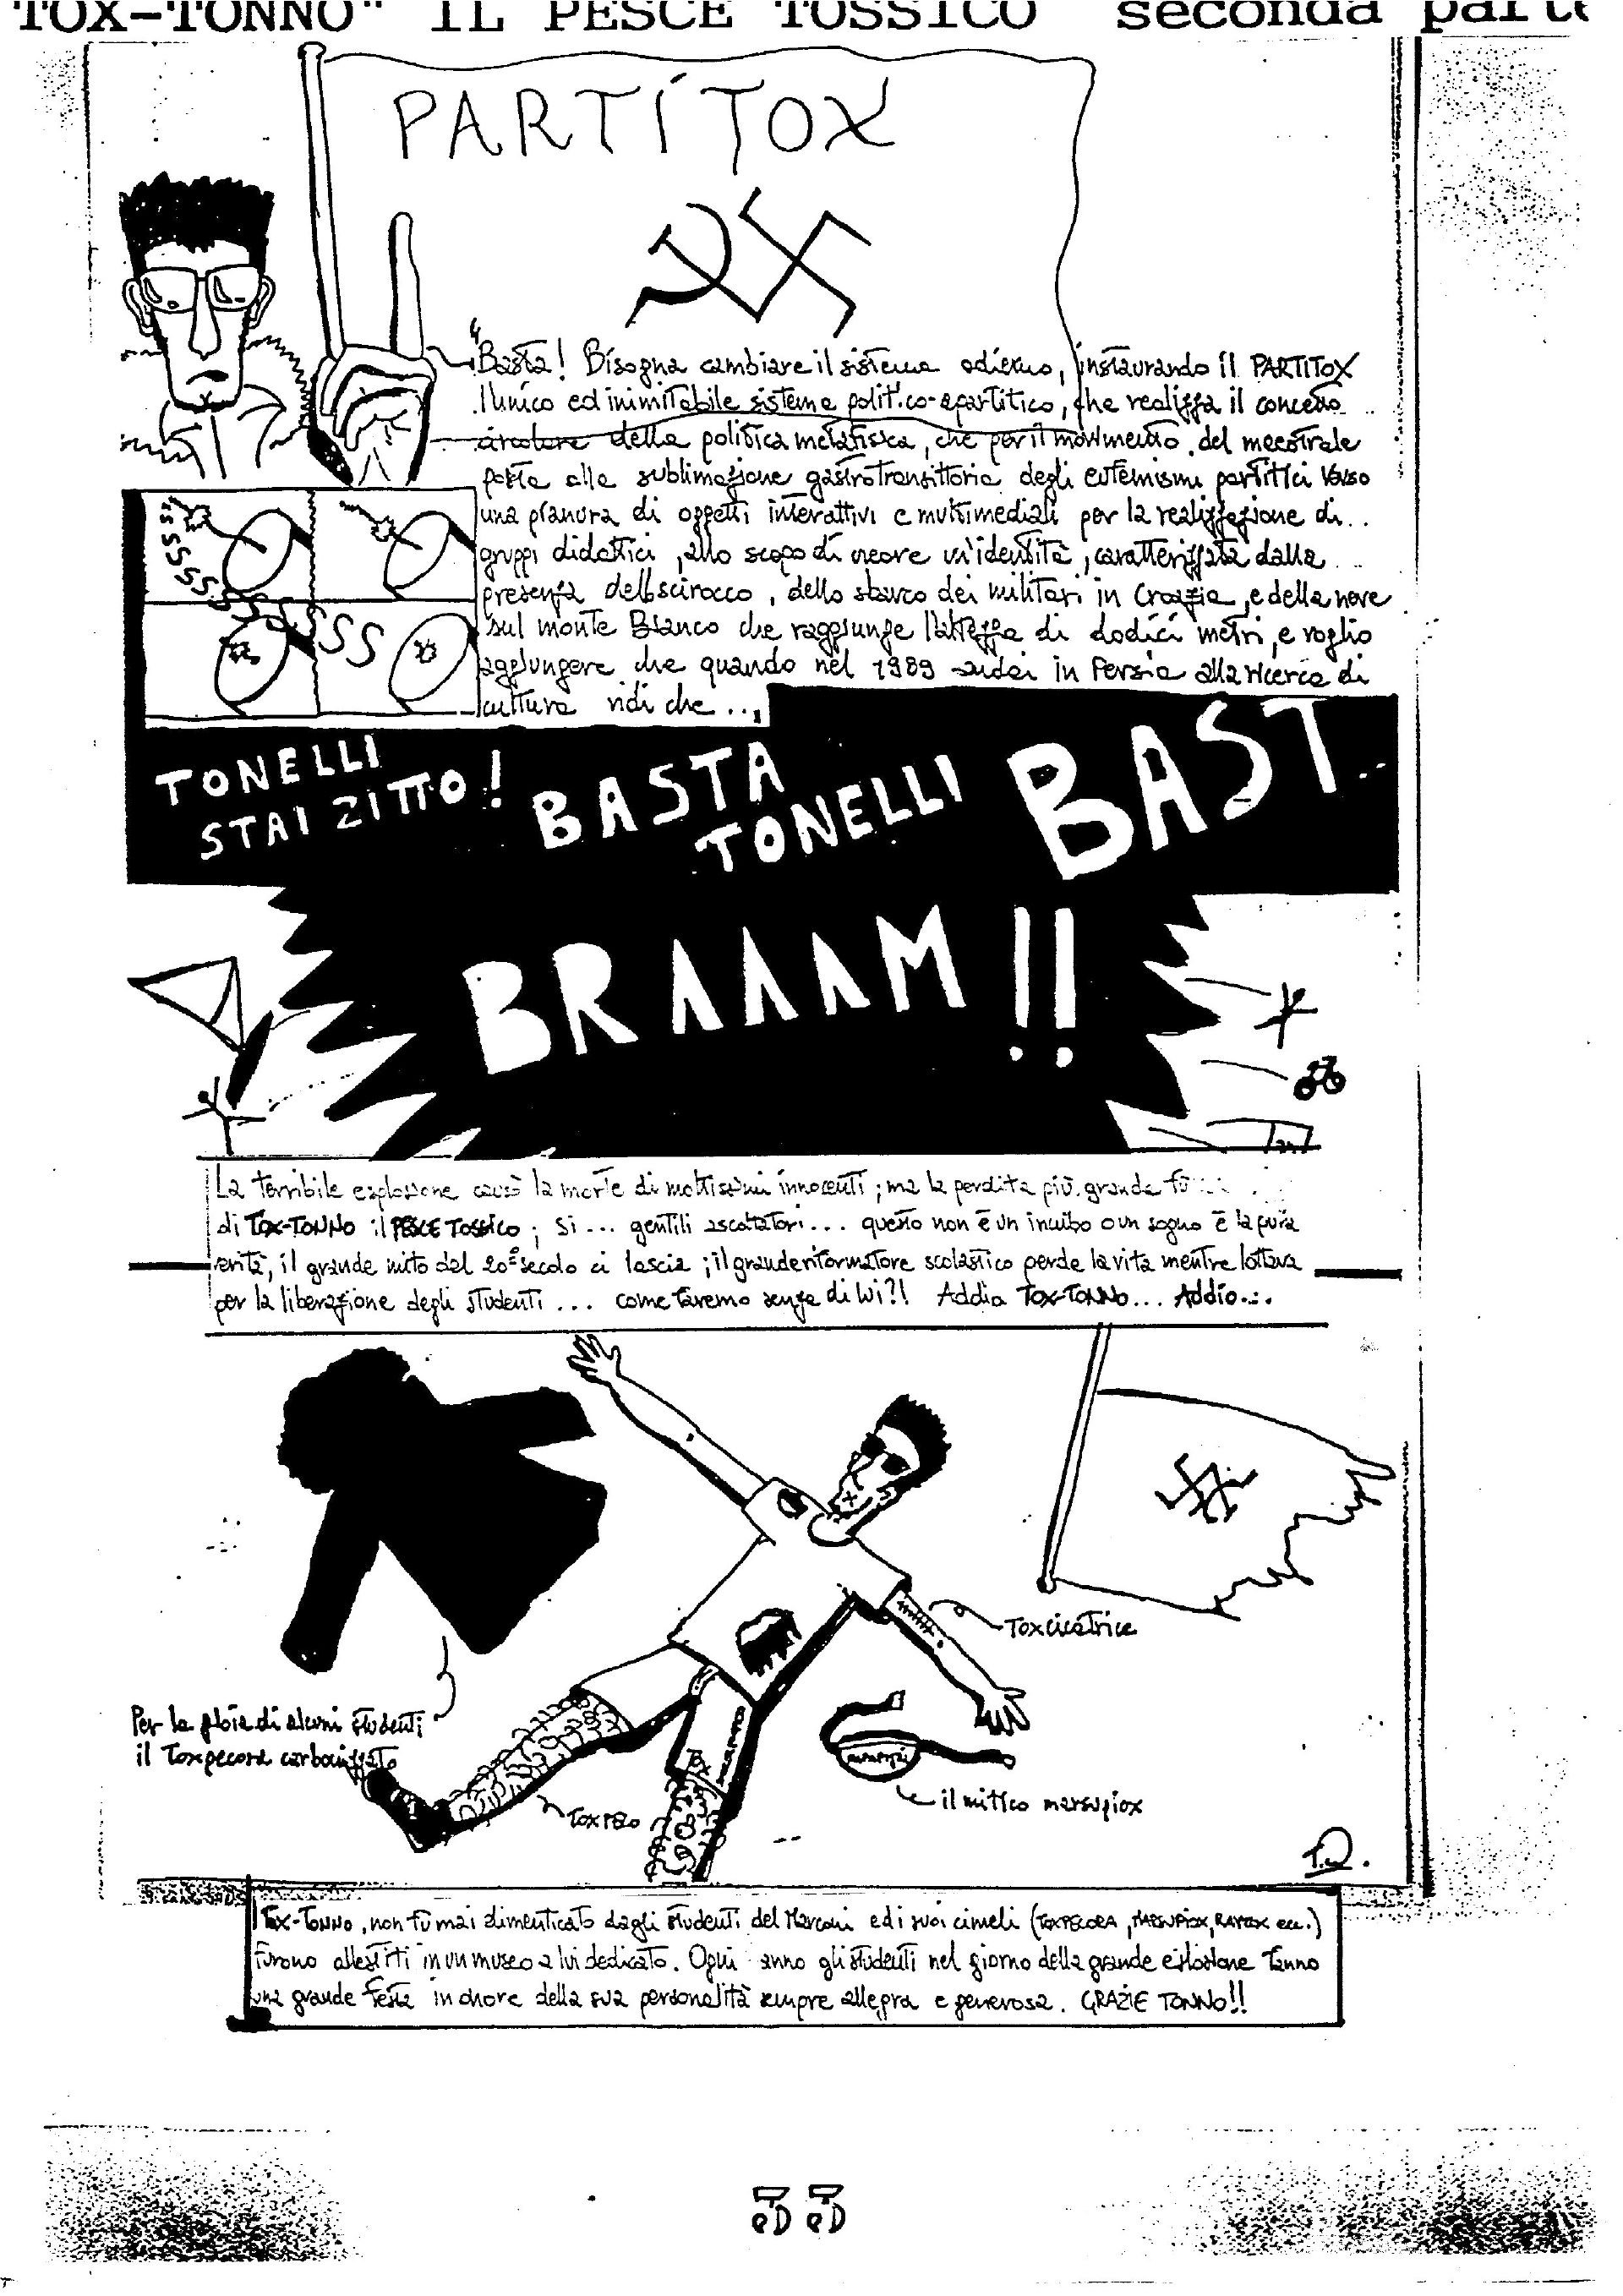 "TOX-TONNO" IL PESCE TOSSICO seconda parte
PARTITOX
"Basta! Bisogna cambiare il sistema odierno, instaurando il PARTITOX
l'unico ed inimitabile sistema politico-apartitico, che realizza il concetto
circolare della politica metafisica, che per il movimento del maestrale
porta alla sublimazione gastrotransittoria degli eufemismi partitici verso
una pianura di oggetti interattivi e multimediali per la realizzazione di..
gruppi didattici, allo scopo di creare un'identità, caratterizzata dalla
presenza dello scirocco, dello sbarco dei militari in Croazia, e della neve
sul monte Bianco che raggiunge l'altezza di dodici metri, e voglio
aggiungere che quando nel 1989 andai in Persia alla ricerca di
cultura vidi che ...
SSSSSSSSSSSSSSS
TONELLI
STAI ZITTO!
BASTA
TONELLI
BAST
BRAAAM!!
La terribile esplosione causò la morte di moltissimi innocenti; ma la perdita più grande fù
di TOX-TONNO il PESCE TOSSICO; si... gentili ascoltatori... questo non è un incubo o un sogno è la pura
verità, il grande mito del 20° secolo ci lascia; il grande riformatore scolastico perde la vita mentre lottava
per la liberazione degli studenti ... come faremo senza di lui?! Addio TOX-TONNO... Addio...
Toxcicatrice
Per la gioia di alcuni studenti
il Toxpecora carbonizzato
Toxpelo
il mitico marsupiox
T.Q.
Tox-Tonno, non fù mai dimenticato dagli studenti del Marconi ed i suoi cimeli (TOXPECORA, MARSUPIOX, RAYBOX ecc.)
furono allestiti in un museo a lui dedicato. Ogni anno gli studenti nel giorno della grande esplosione fanno
una grande festa in onore della sua personalità sempre allegra e generosa. GRAZIE TONNO!!